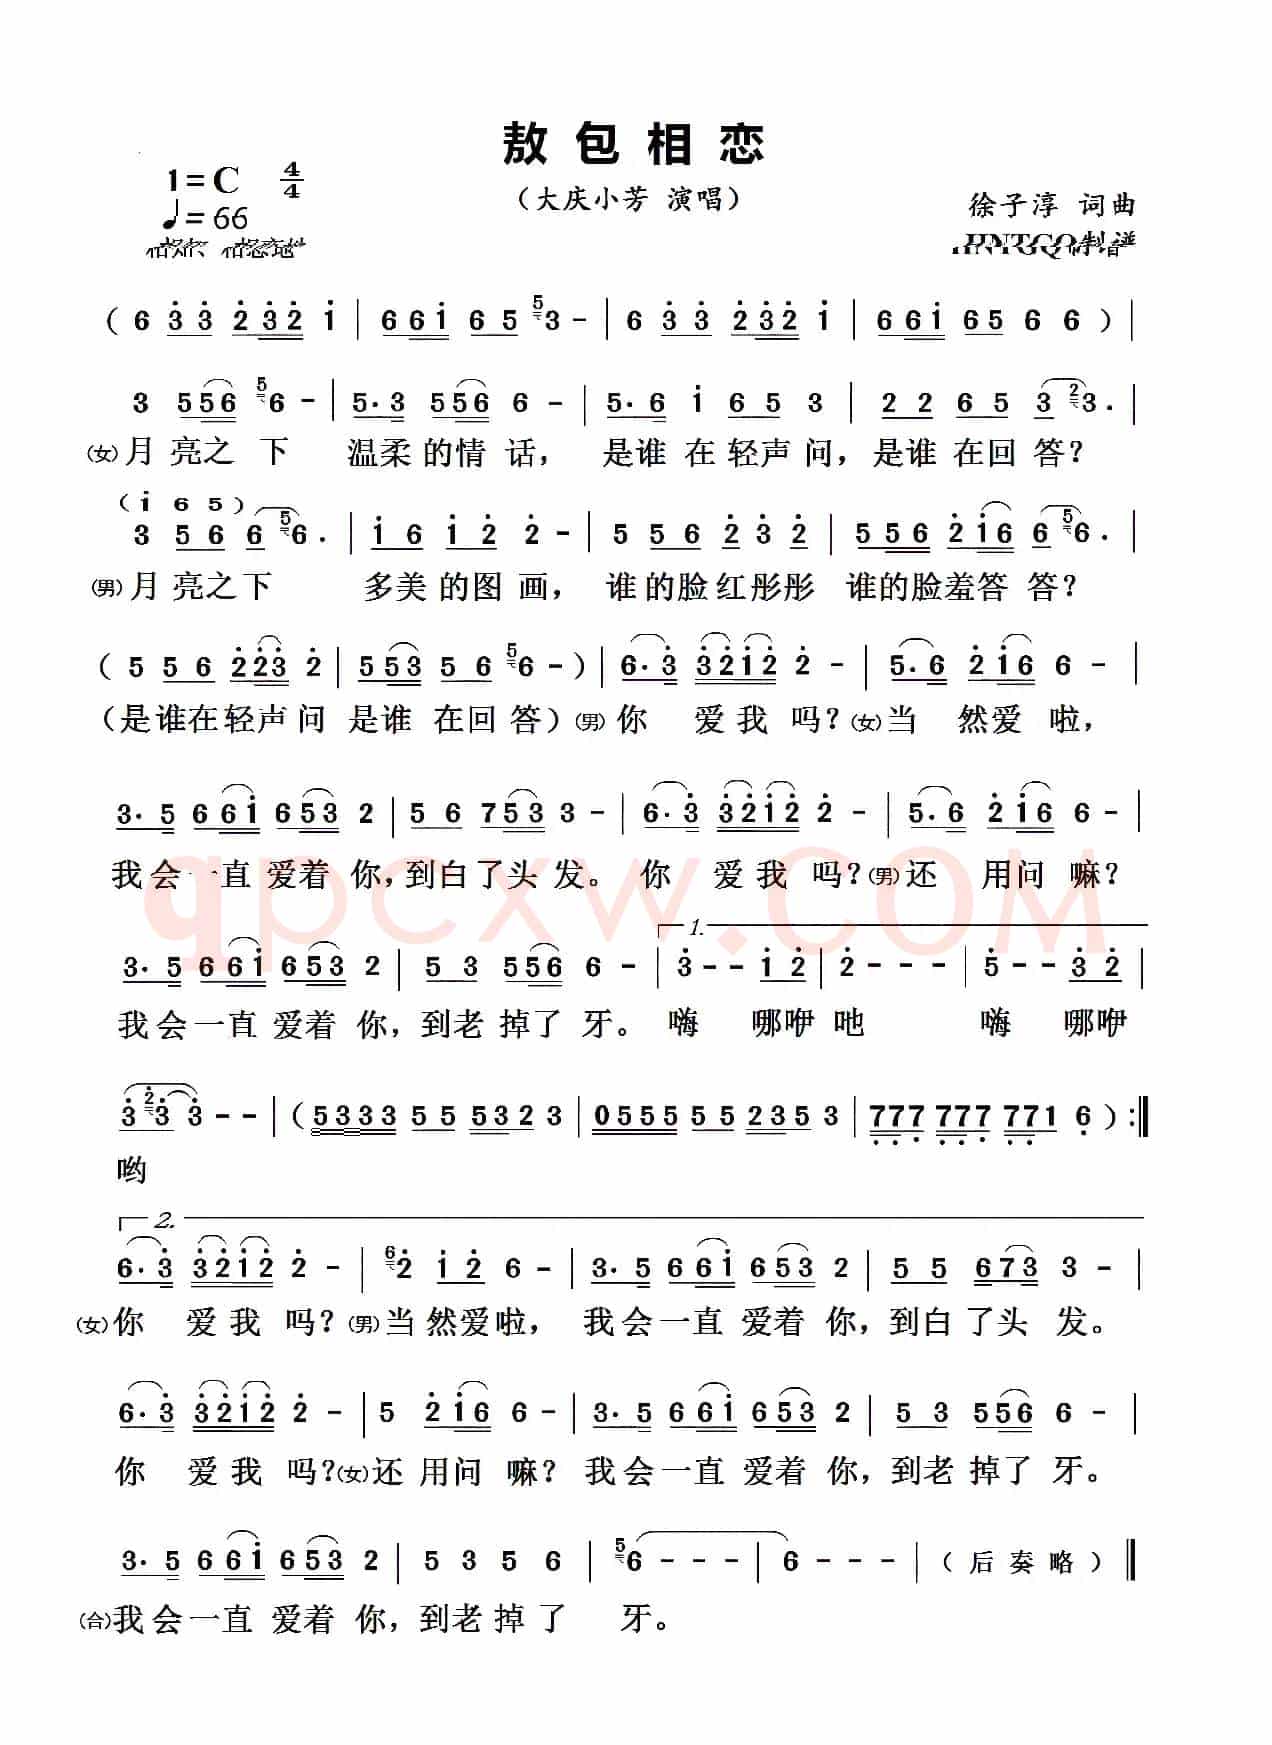 敖包相恋
1=C 4/4
（大庆小芳 演唱）
♩=66
徐子淳 词曲
制谱
（6 3̇ 3̇ 2̇ 3̇ 2̇ 1̇ | 6 6 1̇ 6 5 ⁵3 - | 6 3̇ 3̇ 2̇ 3̇ 2̇ 1̇ | 6 6 1̇ 6 5 6 6 ）|
3 5 5 6 ⁵6 - | 5· 3 5 5 6 6 - | 5· 6 1̇ 6 5 3 | 2 2 6 5 3 ²3· |
（女）月 亮之 下 温柔的情 话， 是谁 在轻声问，是谁 在回答？
（1̇ 6 5）
3 5 6 6 ⁵6· | 1̇ 6 1̇ 2̇ 2̇ - | 5 5 6 2̇ 3̇ 2̇ | 5 5 6 2̇ 1̇ 6 6 ⁵6· |
（男）月 亮之下 多美的图画， 谁的脸红彤彤 谁的脸羞答答？
（5 5 6 2̇ 2̇ 3̇ 2̇ | 5 5 3 5 6 ⁵6 -）| 6· 3̇ 3̇ 2̇ 1̇ 2̇ 2̇ - | 5· 6 2̇ 1̇ 6 6 - |
（是谁在轻声问 是谁 在回答）（男）你 爱我吗？（女）当 然爱啦，
3· 5 6 6 1̇ 6 5 3 2 | 5 6 7 5 3 3 - | 6· 3̇ 3̇ 2̇ 1̇ 2̇ 2̇ - | 5· 6 2̇ 1̇ 6 6 - |
我会一直爱着你，到白了头发。 你 爱我吗？（男）还 用问嘛？
qpcxw.com
1.
3· 5 6 6 1̇ 6 5 3 2 | 5 3 5 5 6 6 - | 3̇ - - 1̇ 2̇ | 2̇ - - - | 5̇ - - 3̇ 2̇ |
我会一直爱着你，到老掉了牙。 嗨 哪咿吔 嗨 哪咿
3̇ ²̇3̇ 3̇ - - |（5 3 3 3 5 5 5 3 2 3 | 0 5 5 5 5 5 2 3 5 3 | 7̣ 7̣ 7̣ 7̣ 7̣ 7̣ 7̣ 7̣ 1 6̣ ）:‖
哟
2.
6· 3̇ 3̇ 2̇ 1̇ 2̇ 2̇ - | ⁶2̇ 1̇ 2̇ 6 - | 3· 5 6 6 1̇ 6 5 3 2 | 5 5 6 7 3 3 - |
（女）你 爱我吗？（男）当然爱啦， 我会一直爱着你，到白了头发。
6· 3̇ 3̇ 2̇ 1̇ 2̇ 2̇ - | 5 2̇ 1̇ 6 6 - | 3· 5 6 6 1̇ 6 5 3 2 | 5 3 5 5 6 6 - |
你 爱我吗？（女）还用问嘛？ 我会一直爱着你，到老掉了牙。
3· 5 6 6 1̇ 6 5 3 2 | 5 3 5 6 | ⁵6 - - - | 6 - - - |（后奏略）‖
（合）我会一直爱着你，到老掉了 牙。